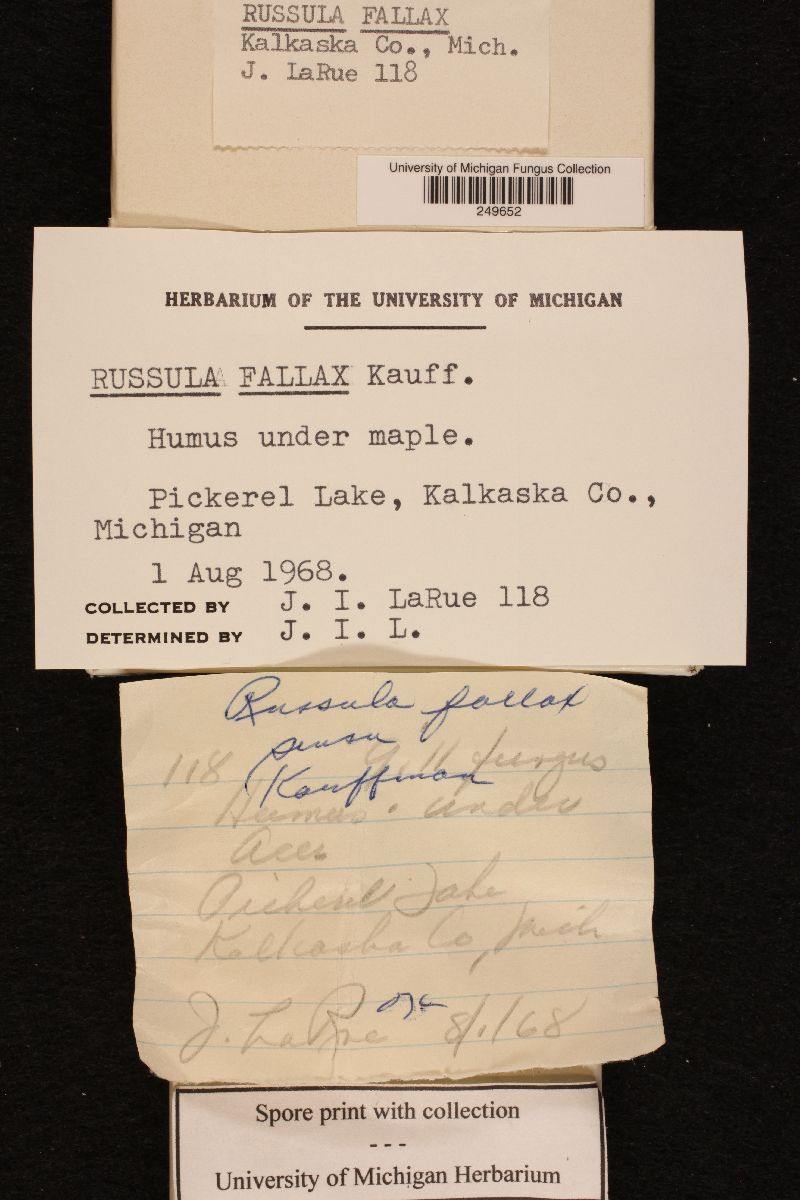 RUSSULA FALLAX
Kalkaska Co., Mich.
J. LaRue 118
University of Michigan Fungus Collection
249652
HERBARIUM OF THE UNIVERSITY OF MICHIGAN
RUSSULA FALLAX Kauff.
Humus under maple.
Pickerel Lake, Kalkaska Co.,
Michigan
1 Aug 1968.
COLLECTED BY J. I. LaRue 118
DETERMINED BY J. I. L.
Russula fallax
sensu
118 Gill fungus
Kauffman
Humus. under
Acer
Pickerel Lake
Kalkaska Co, Mich
J. LaRue 8/1/68
Spore print with collection
---
University of Michigan Herbarium